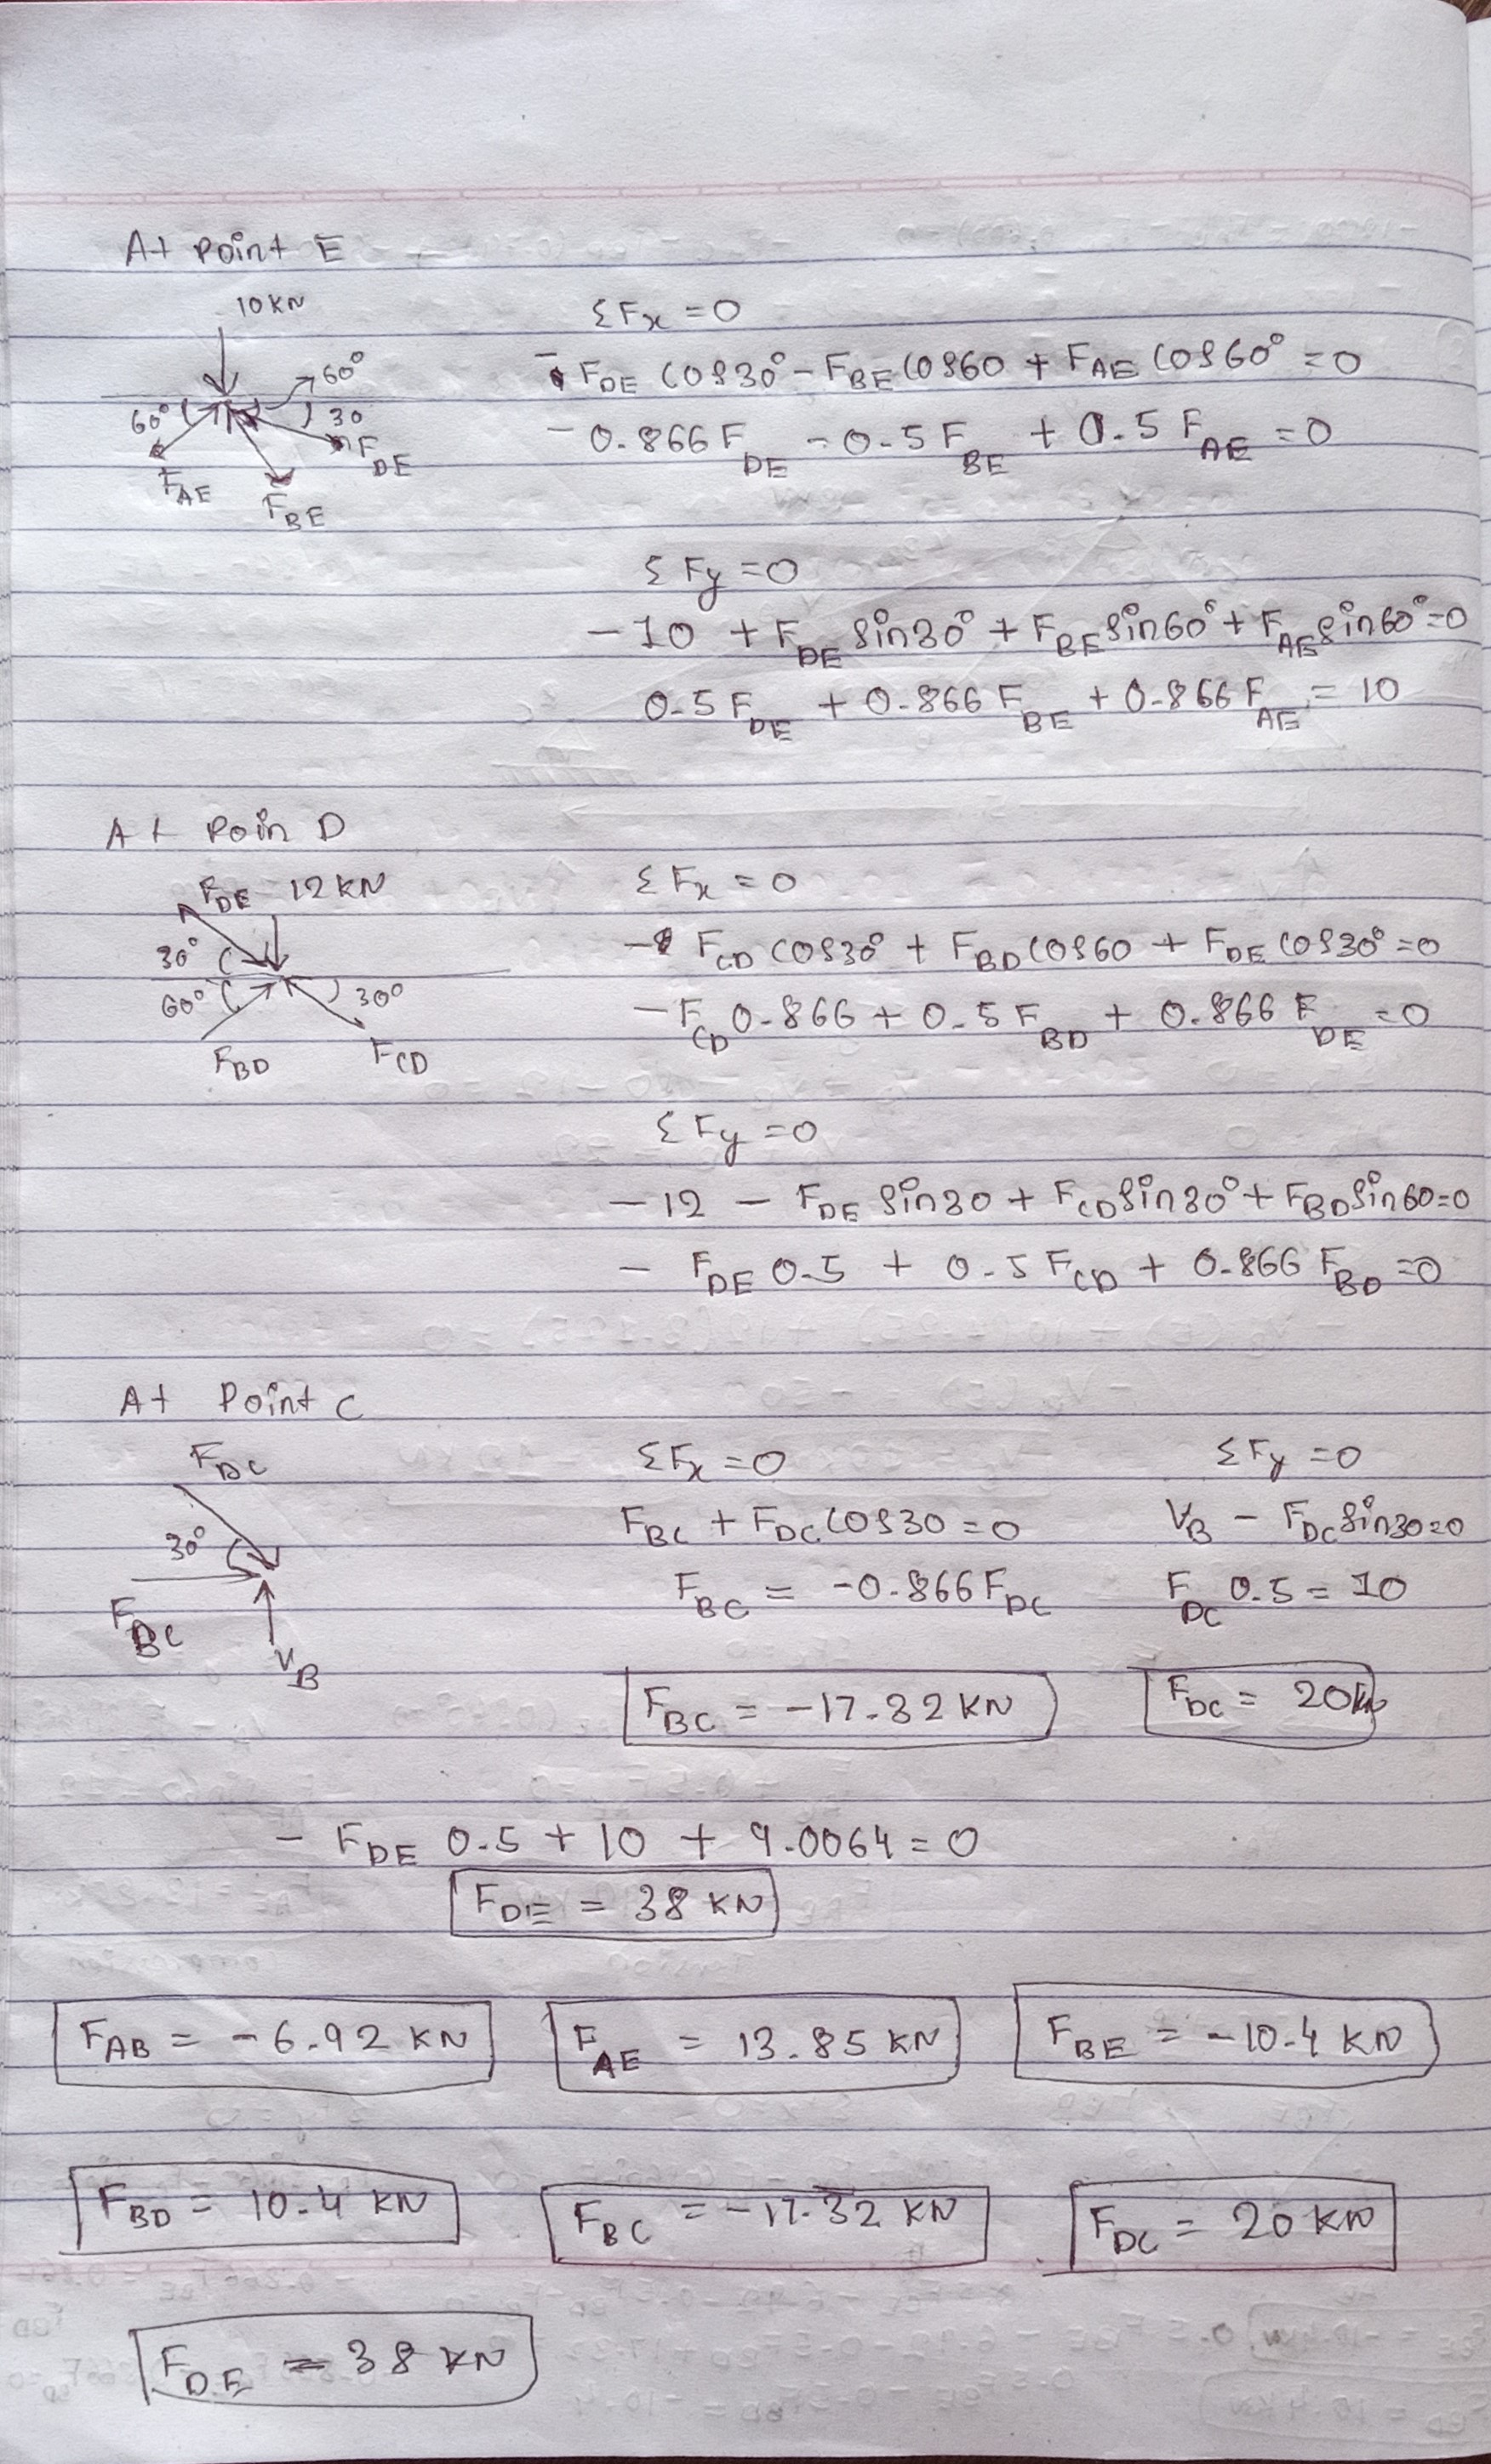 At Point E
10 KN
60°
60°
30
F_DE
F_AE
F_BE
ΣFx = 0
- F_DE cos30° - F_BE cos60 + F_AE cos60° = 0
- 0.866 F_DE - 0.5 F_BE + 0.5 F_AE = 0
ΣFy = 0
- 10 + F_DE sin30° + F_BE sin60° + F_AE sin60° = 0
0.5 F_DE + 0.866 F_BE + 0.866 F_AE = 10
At Poin D
F_DE 12 KN
30°
60°
30°
F_BD
F_CD
ΣFx = 0
- F_CD cos30° + F_BD cos60 + F_DE cos30° = 0
- F_CD 0.866 + 0.5 F_BD + 0.866 F_DE = 0
ΣFy = 0
- 12 - F_DE sin30 + F_CD sin30° + F_BD sin60 = 0
- F_DE 0.5 + 0.5 F_CD + 0.866 F_BD = 0
At Point C
F_DC
30°
F_BC
V_B
ΣFx = 0
F_BC + F_DC cos30 = 0
F_BC = -0.866 F_DC
F_BC = -17.32 KN
ΣFy = 0
V_B - F_DC sin30 = 0
F_DC 0.5 = 10
F_DC = 20 KN
- F_DE 0.5 + 10 + 9.0064 = 0
F_DE = 38 KN
F_AB = -6.92 KN
F_AE = 13.85 KN
F_BE = -10.4 KN
F_BD = 10.4 KN
F_BC = -17.32 KN
F_DC = 20 KN
F_DE = 38 KN